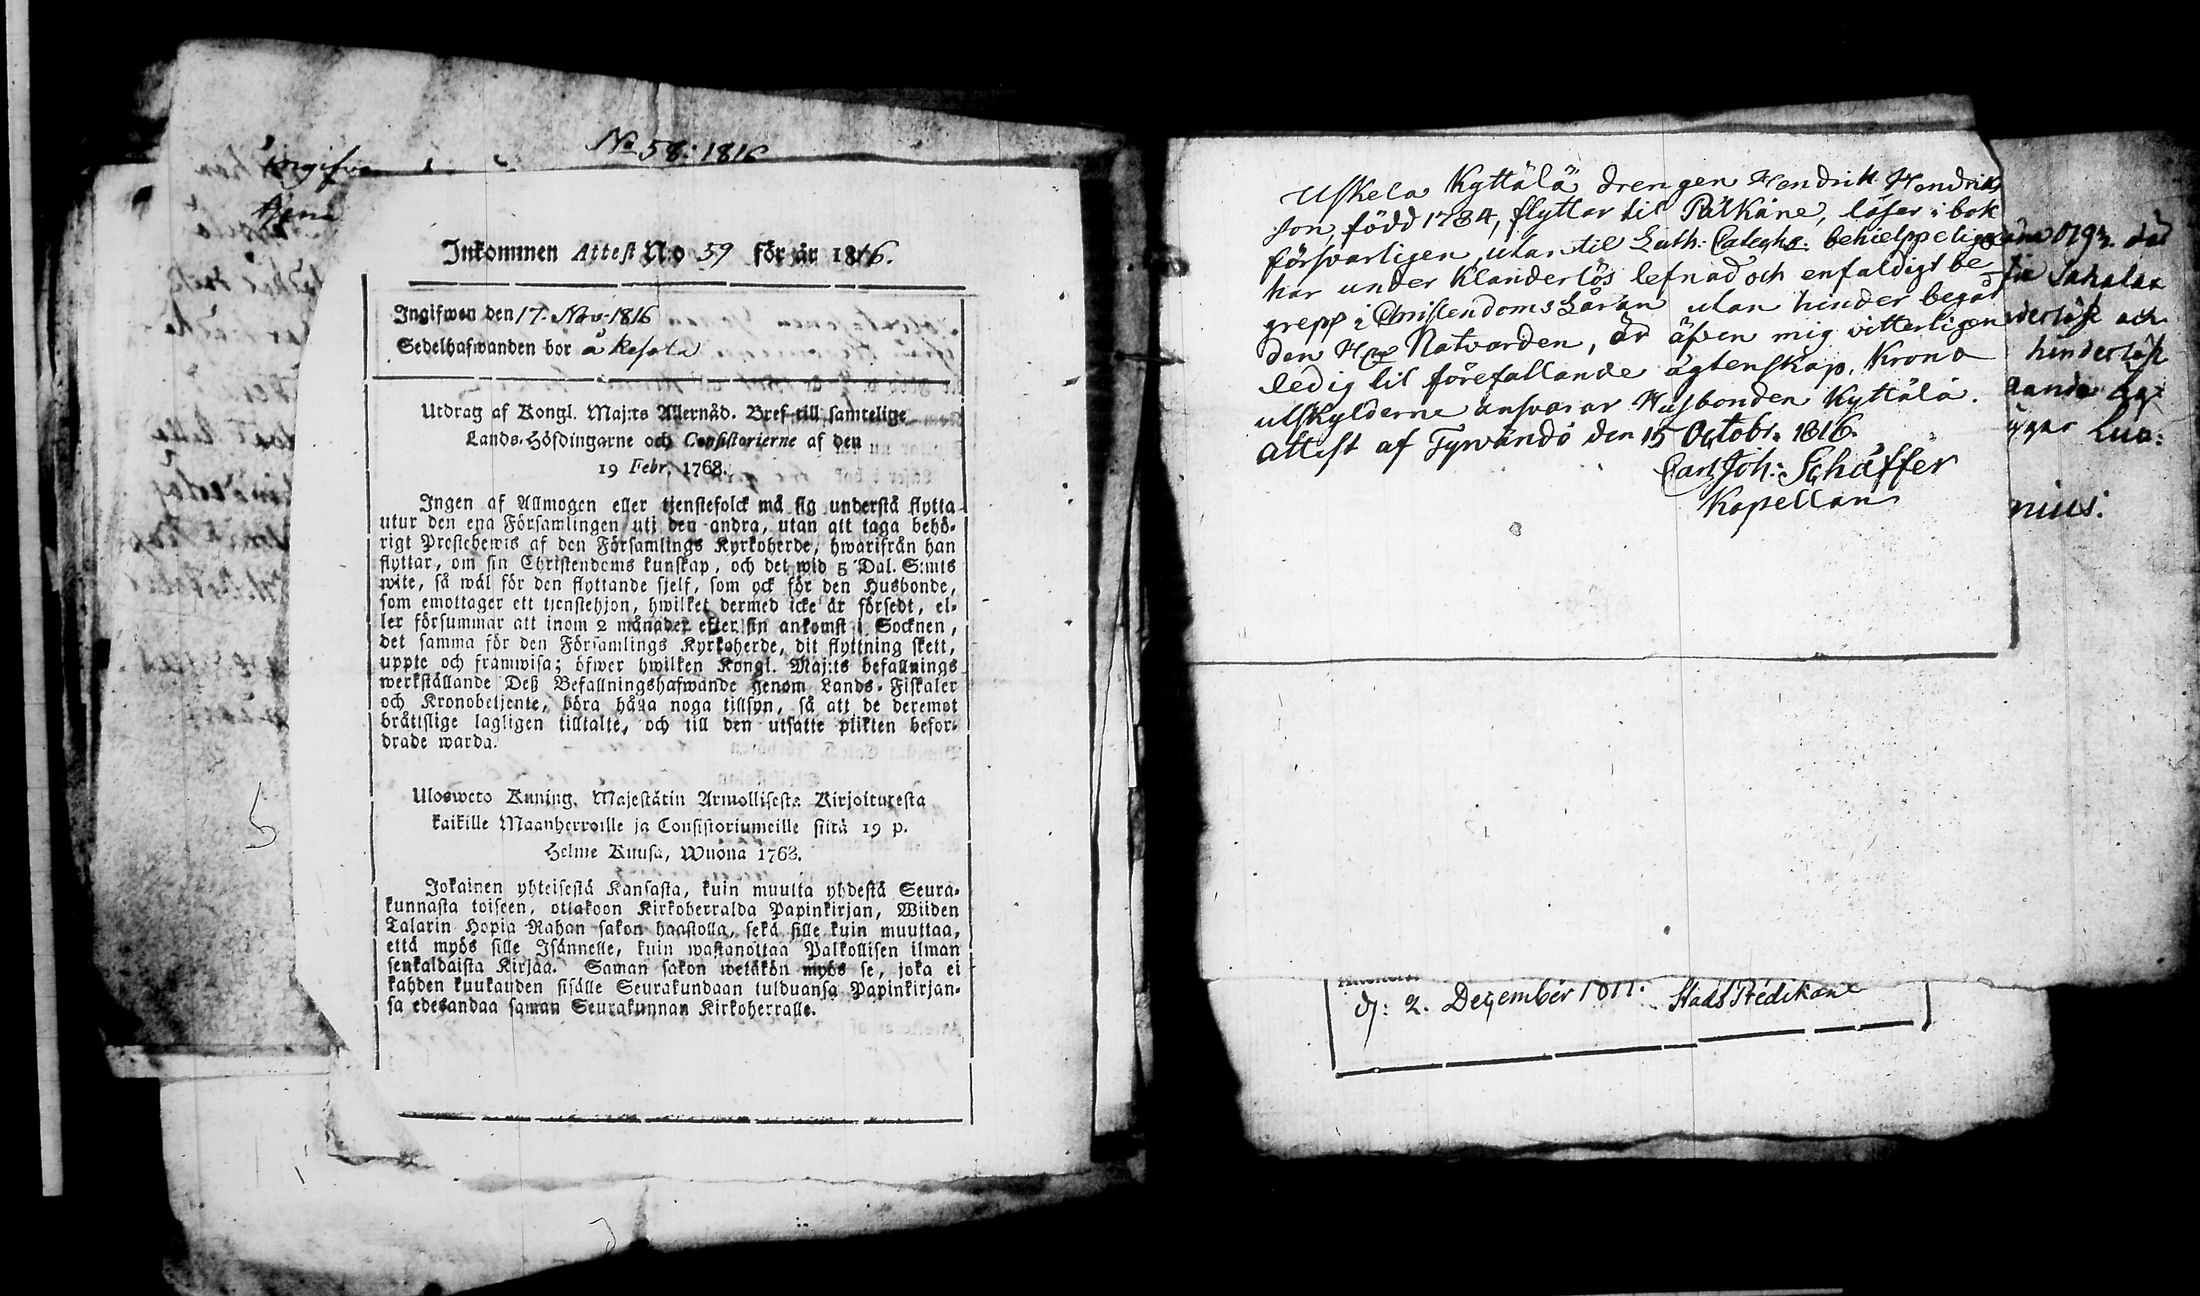 No 58: 1816
Inkommen Attest N:o 59 för år 1816.
Ingifwen den 17. Nov. 1816
Sedelhafwanden bor å Kesala
Utdrag af Kongl. Maj:ts Allernåd. Bref till samtelige
Lands-Höfdingarne och Consistorierne af den
19 Febr. 1768.
Ingen af Allmogen eller tjenstefolck må sig understå flytta
utur den ena Församlingen uti den andra, utan att taga behö-
rigt Prestebewis af den Församlings Kyrkoherde, hwarifrån han
flyttar, om sin Christendoms kunskap, och det wid 5 Dal. S:mts
wite, så wäl för den flyttande sjelf, som ock för den Husbonde,
som emottager ett tjenstehjon, hwilket dermed icke är försedt, el-
ler försummar att inom 2 månader efter sin ankomst i Socknen,
det samma för den Församlings Kyrkoherde, dit flyttning skett,
uppte och framwisa; öfwer hwilken Kongl. Maj:ts befallnings
werkställande Deß Befallningshafwande genom Lands-Fiskaler
och Kronobetjente, böra hålla noga tillsyn, så att de deremot
bråttslige lagligen tilltalte, och till den utsatte plikten befor-
drade warda.
Ulosweto Kuning. Majestätin Armollisesta Kirjoituresta
kaikille Maanherroille ja Consistoriumeille siitä 19 p.
Helme Kuusa, Wuona 1768.
Jokainen yhteisestä Kansasta, kuin muutta yhdestä Seura-
kunnasta toiseen, ottakoon Kirkoherralda Papinkirjan, Wiiden
Talarin Hopia Rahan sakon haastolla, sekä sille kuin muuttaa,
että myös sille Isännelle, kuin wastanottaa Palkollisen ilman
senkaldaista Kirjaa. Saman sakon wetäkön myös se, joka ei
kahden kuukauden sisälle Seurakundaan tulduansa Papinkirjan-
sa edesandaa saman Seurakunnan Kirkoherralle.
Uskela Kyttälä drengen Hendrik Hendrik
son, född 1784, flyttar til Pälkäne, läser i bok
försvarligen, utan til Luth: Catechs: behielppeligen
har under klanderlös lefnad och enfaldigt be-
grepp i Christendoms Läran utan hinder begåt
den H. Natvarden, är äfven mig vitterligen
ledig til förefallande ägtenskap. Krono
utskylderne ansvarar Husbonden Kyttälä.
Attest af Tyrvändö den 15 Octobr. 1816.
Carl Joh: Schäffer
Kapellan
hinderlöst
nius:
d: 2. December 1811. Stads Predikant